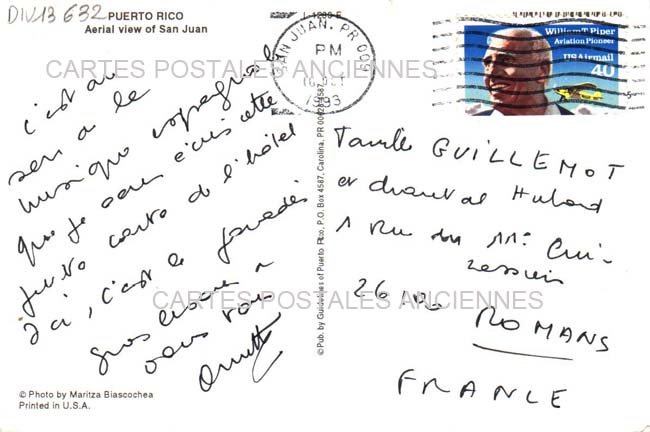 DIV13 632
PUERTO RICO
Aerial view of San Juan
L-1288-E
SAN JUAN, PR 009
PM
1993
William T. Piper
Aviation Pioneer
US Airmail
40
CARTES POSTALES ANCIENNES
c'est au
son de la
musique espagnole
que je vous écris cette
carte de l'hôtel
Ici, c'est le paradis
gros bisous à
vous tous
© Photo by Maritza Biascochea
Printed in U.S.A.
© Pub. by Guidelines of Puerto Rico, P.O. Box 4587, Carolina, PR 00628-4587
Famille GUILLEMOT
et chantal Hubard
1 Rue du 11e Cui-
rassier
26 100
ROMANS
FRANCE
CARTES POSTALES ANCIENNES